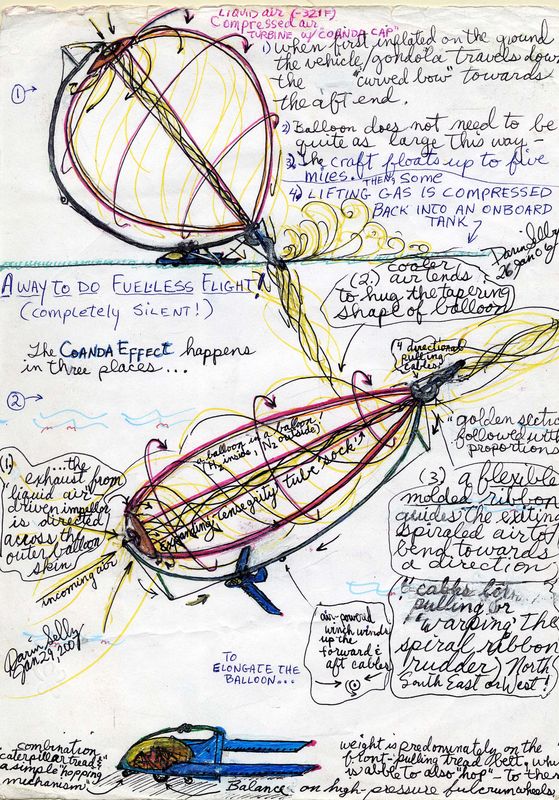 LIQUID air (-321F)
Compressed air
TURBINE w/ COANDA CAP"
1) When first inflated on the ground
the vehicle/gondola travels down
the "curved bow" towards
the aft end.
2) Balloon does not need to be
quite as large this way -
3. The craft floats up to five
miles. THEN, some
4) LIFTING GAS IS COMPRESSED
BACK INTO AN ONBOARD
TANK
1
Darin Selby
26 Jan 07
A WAY TO DO FUELLESS FLIGHT!
(completely SILENT!)
The COANDA EFFECT happens
in three places...
(2.) cooler
air tends
to hug the tapering
shape of balloon
(4 directional
pulling
cables)
2
"a balloon in a balloon,"
H2 inside, N2 outside)
expanding tensegrity tube sock
(1.) ...the
exhaust from
"liquid air"
driven impeller
is directed
across the
outer balloon
skin
incoming air
"golden section
followed with
proportions
(3.) a flexible
molded ribbon
guides the exiting
spiraled air to
bend towards
a direction
"cables both
pulling or
"warping" the
spiral ribbon
(rudder) North
South East or West!
Darin Selby
Jan 29, 2007
air-powered
winch winds
up the
forward &
aft cables
TO
ELONGATE THE
BALLOON...
combination
caterpillar tread &
a simple "hopping"
mechanism
Balance
weight is predominately on the
front-pulling tread belt, whi
is able to also "hop" - to then
on high-pressure fulcrum wheels